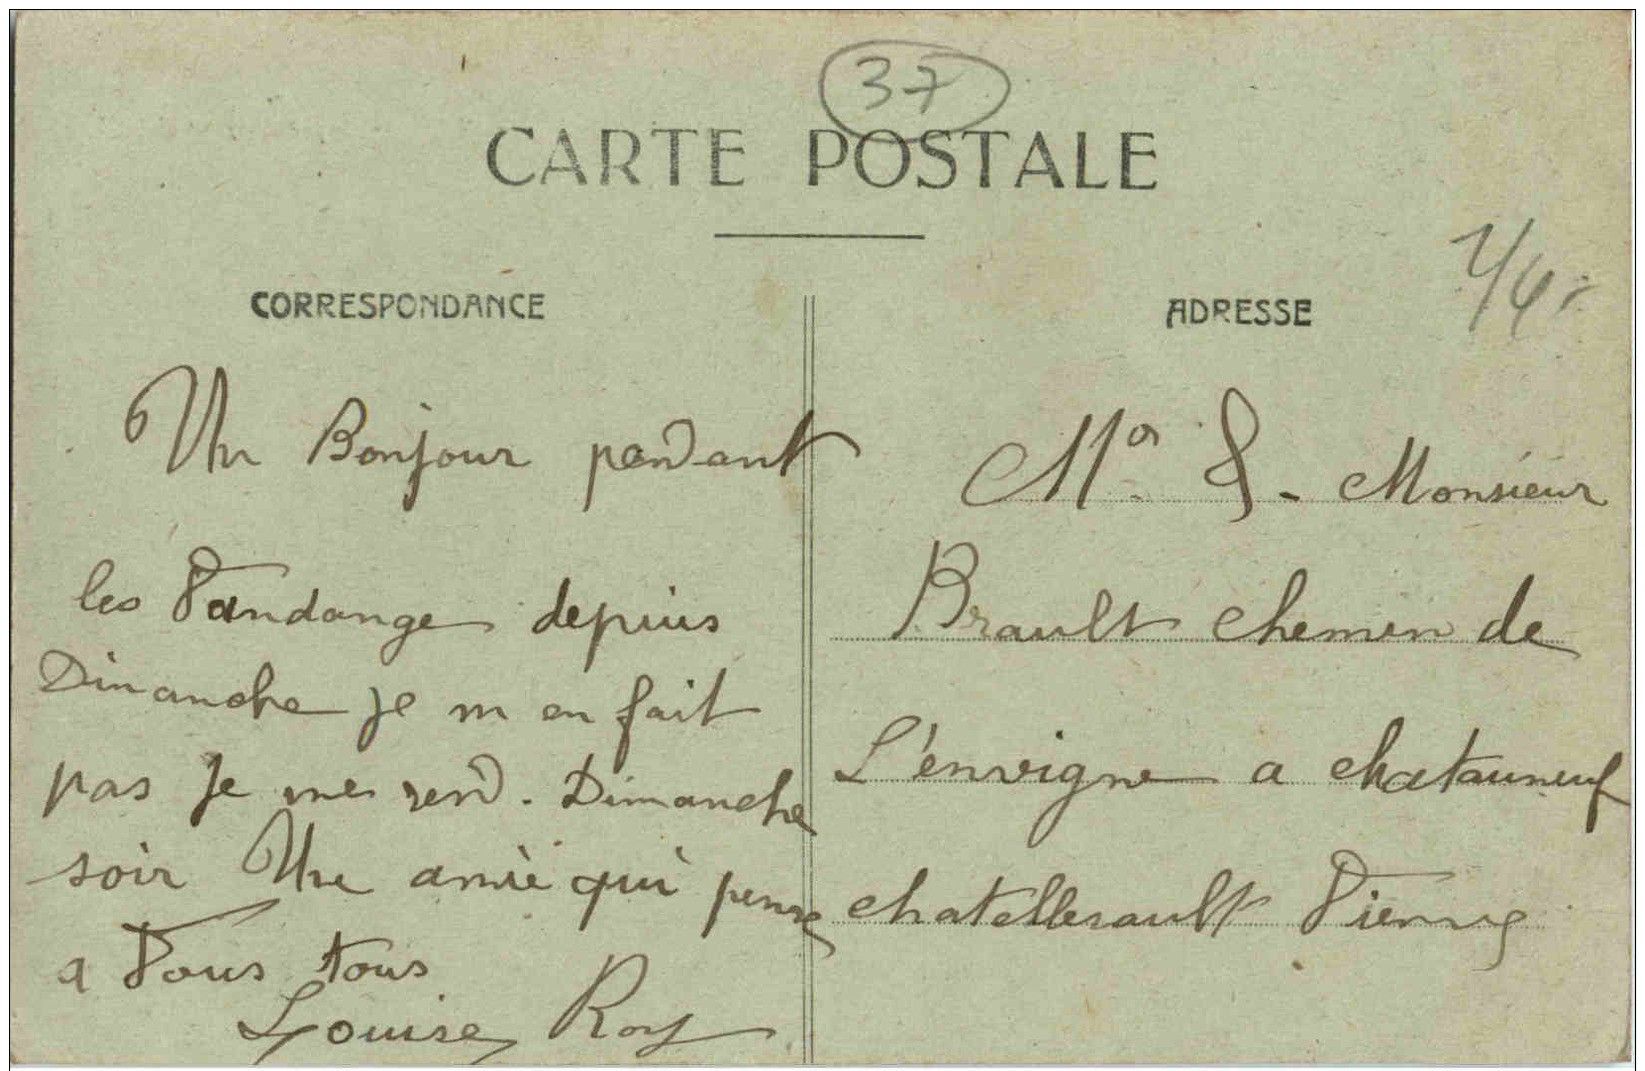 37
CARTE POSTALE
CORRESPONDANCE
Un Bonjour pendant
les Vandange depuis
Dimanche je m en fait
pas Je me rend. Dimanche
soir Une amie qui pense
a Vous tous
Louise Roy
ADRESSE
Mr & - Monsieur
Brault chemin de
L'envigne a chatauneuf
chatellerault Vienne